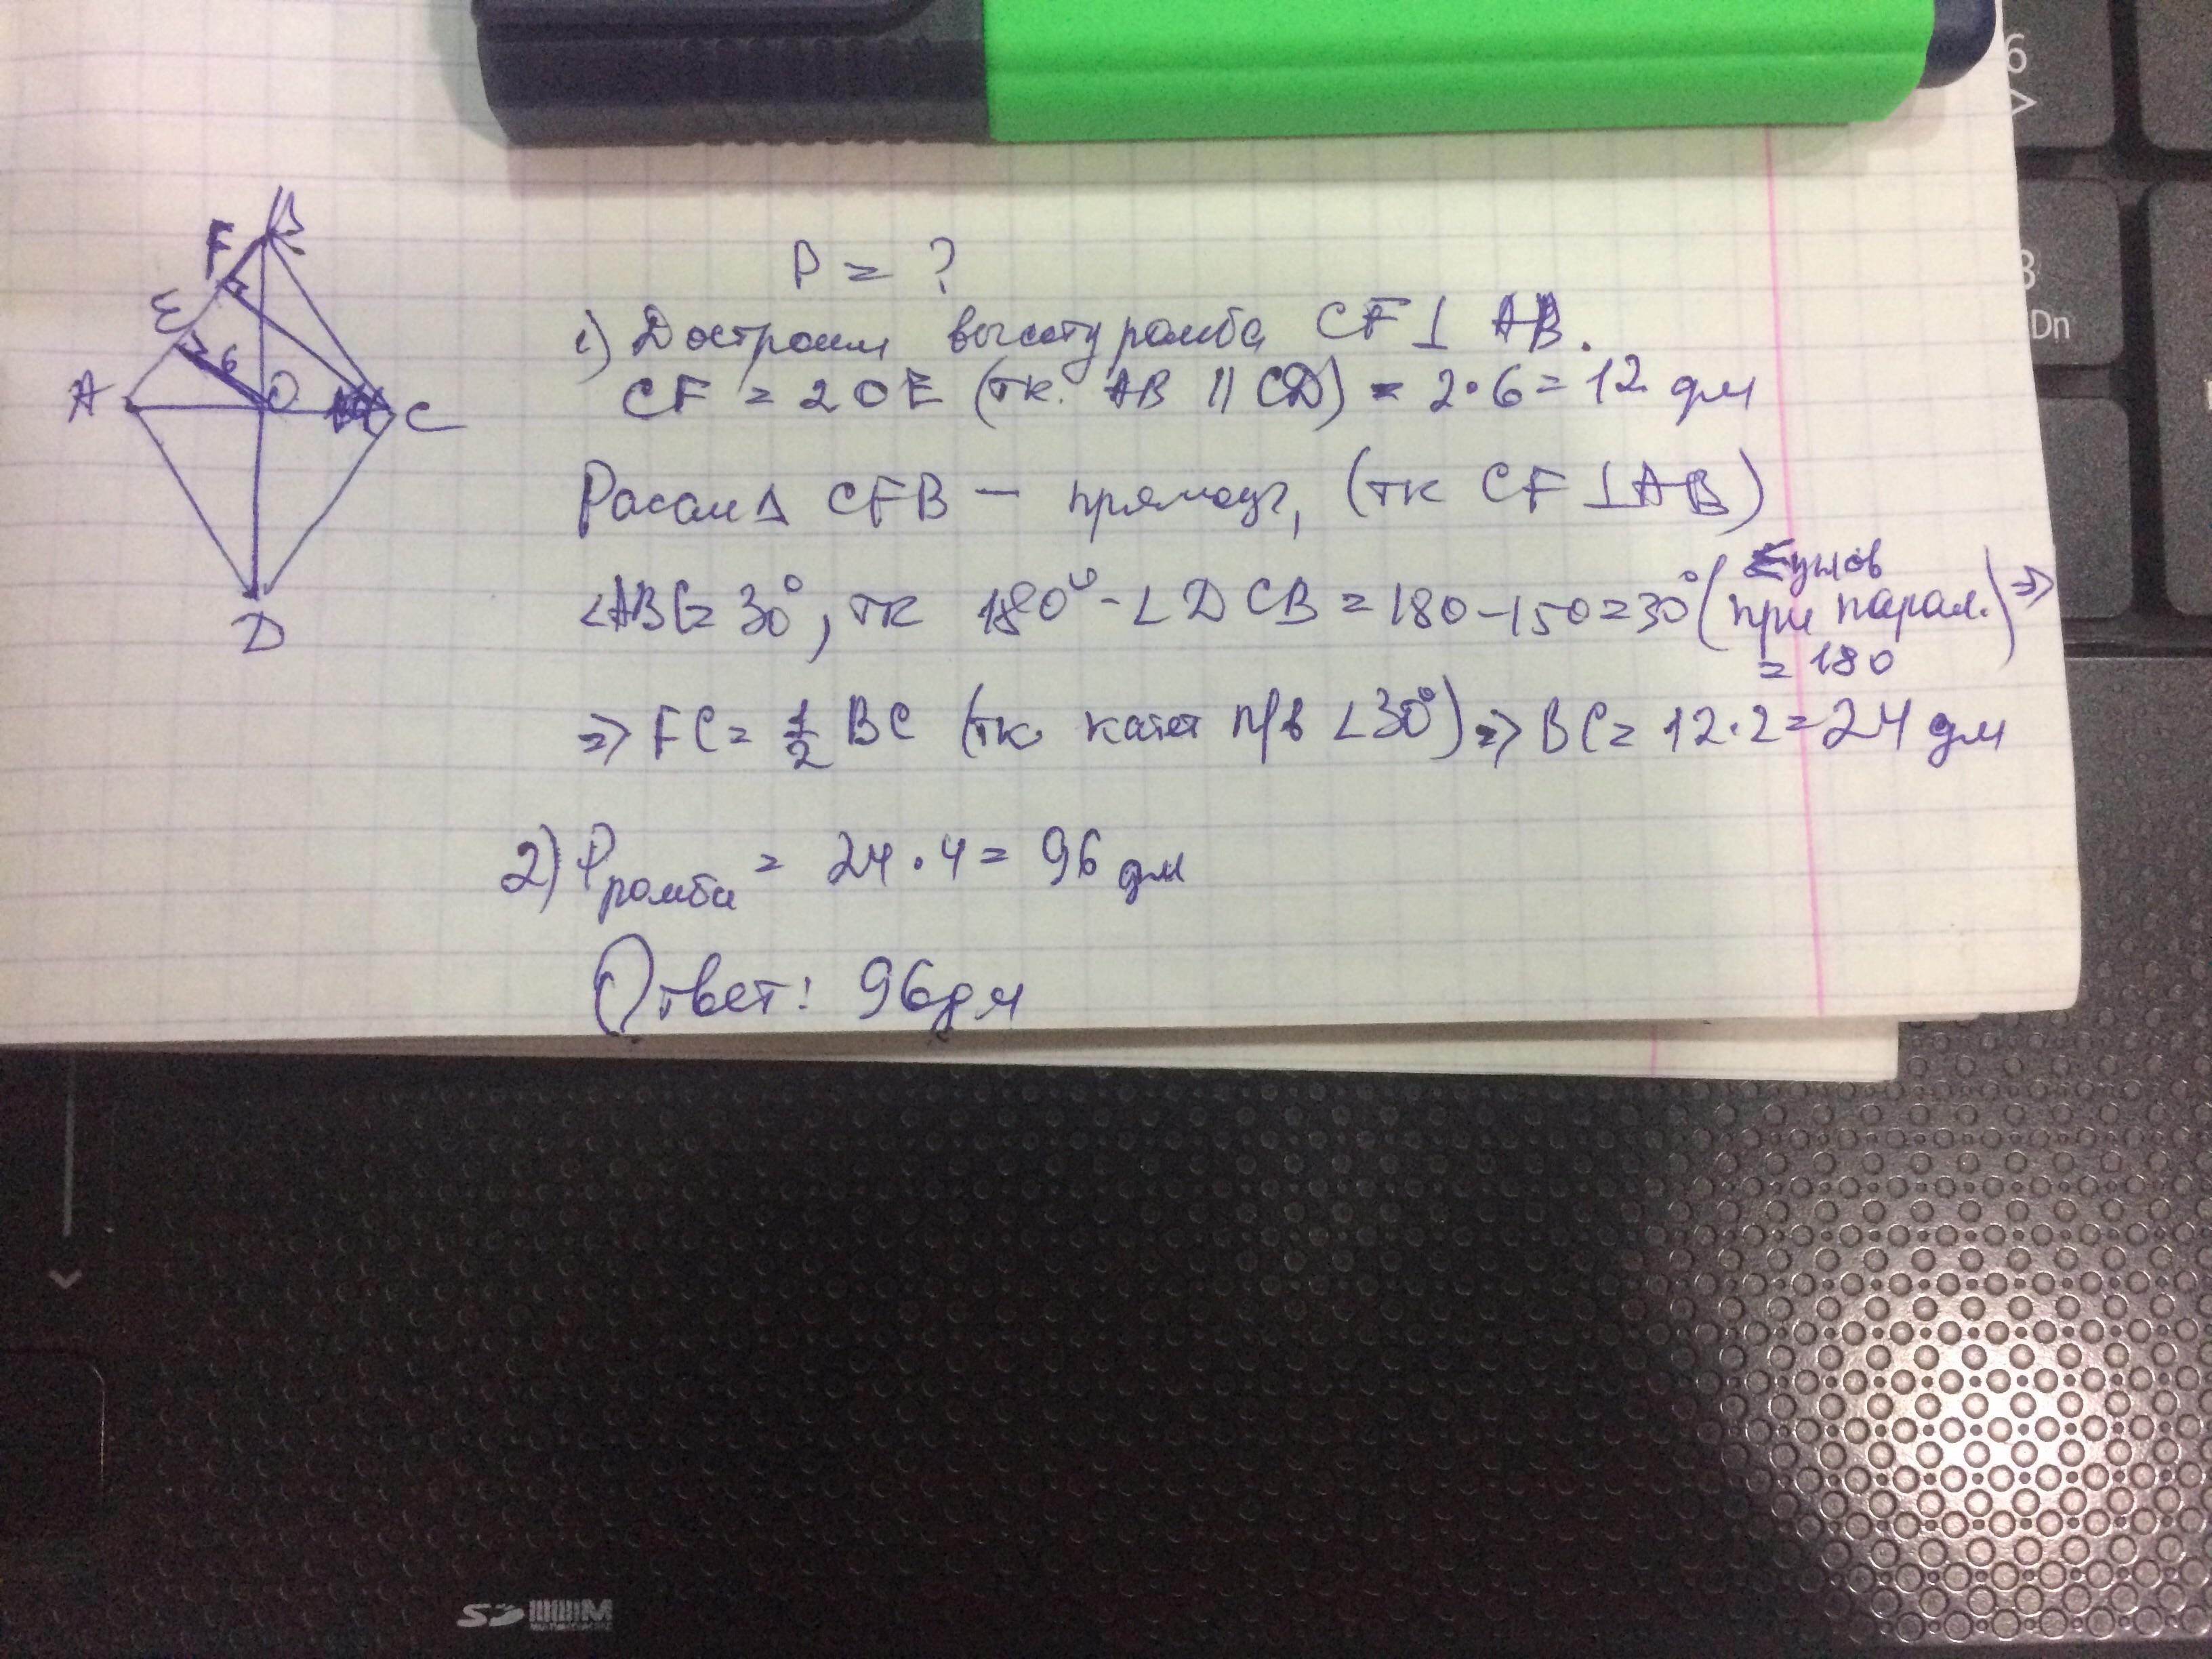 P = ?
1) Достроим высоту ромба CF ⊥ AB.
CF = 2 OE (тк. AB || CD) = 2·6 = 12 дм
Рассм Δ CFB – прямоуг, (тк CF ⊥ AB)
∠ABC = 30°, тк 180° - ∠DCB = 180 - 150 = 30° (Σ углов при парал. = 180) =>
=> FC = 1/2 BC (тк катет п/в ∠30°) => BC = 12·2 = 24 дм
2) Pромба = 24·4 = 96 дм
Ответ: 96 дм
B
F
E
6
A
O
C
D
6
3
Dn
SD
MULTIMEDIACARD